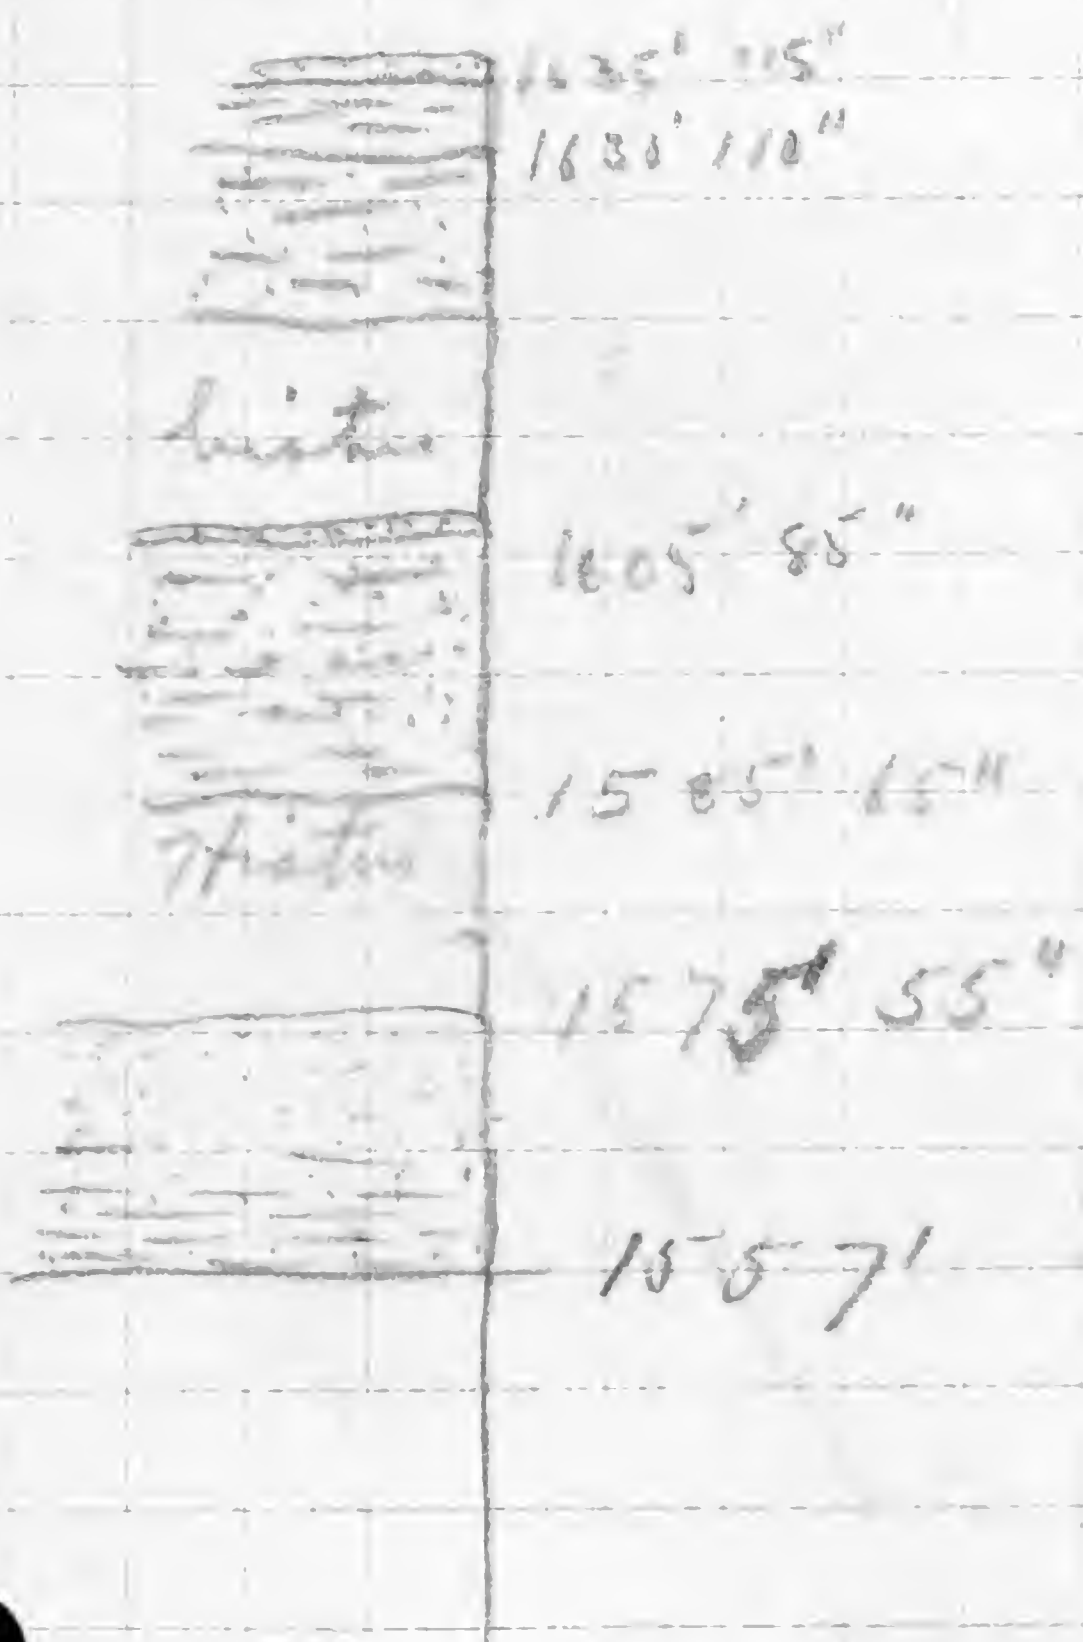 1635' 115"
1630' 110"
hiatus
1605' 85"
1585' 65"
hiatus
1575' 55"
1557'